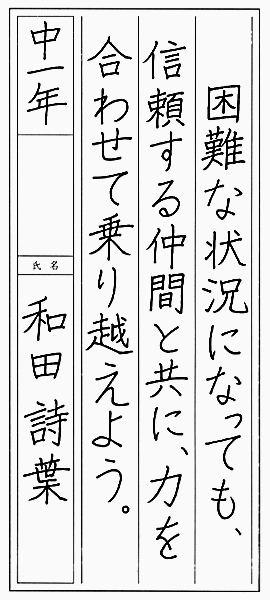 困難な状況になっても、
信頼する仲間と共に、力を
合わせて乗り越えよう。
中一年
氏名
和田詩葉